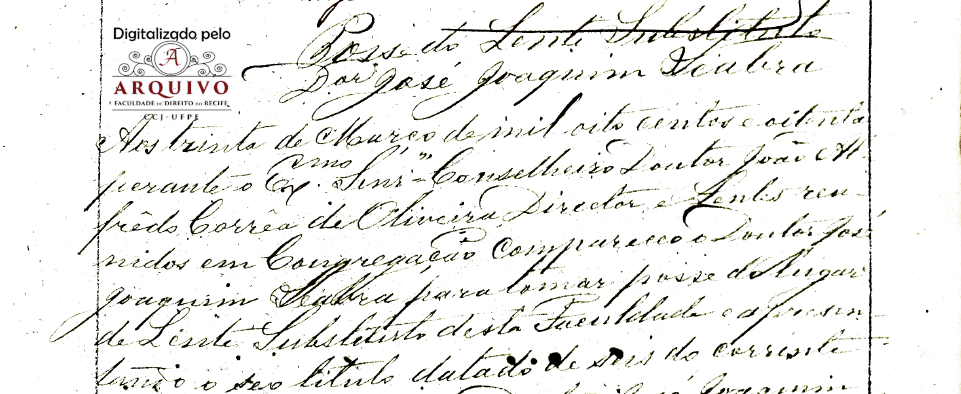 Digitalizado pelo
A
ARQUIVO
FACULDADE DE DIREITO DO RECIFE
CCJ-UFPE
Posse do Lente Substituto
Dor José Joaquim Seabra
Aos trinta de Março de mil oito centos e oitenta
perante o Exmo. Senr. Conselheiro Doutor João Al-
frêdo Corrêa de Oliveira Director e Lentes reu-
nidos em Congregação compareceo o Doutor José
Joaquim Seabra para tomar posse do lugar
de Lente Substituto desta Faculdade e apresen-
tando o seo titulo datado de seis do corrente
José Joaquim